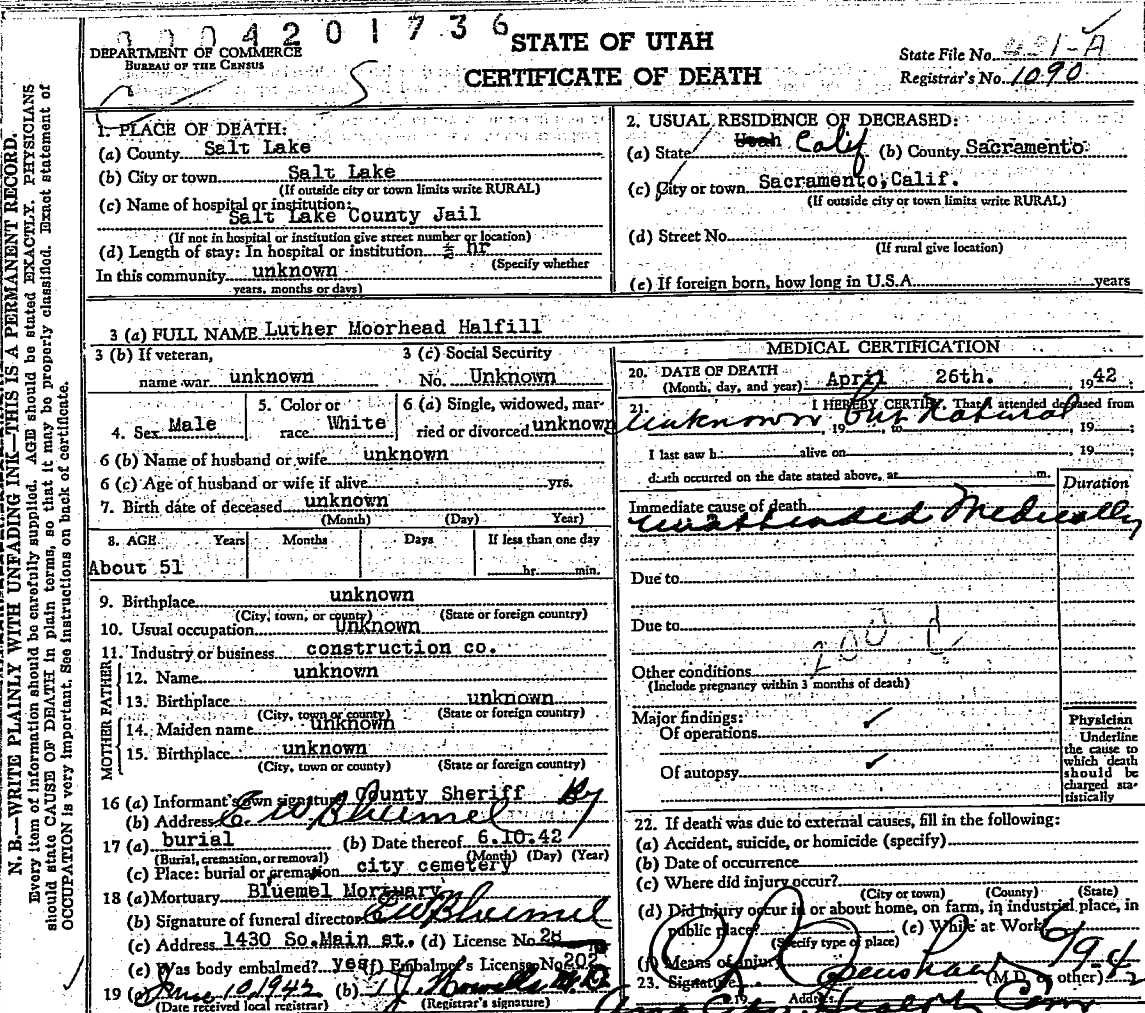 000420 1736
STATE OF UTAH
CERTIFICATE OF DEATH
DEPARTMENT OF COMMERCE
BUREAU OF THE CENSUS
State File No. 221-A
Registrar's No. 1090
N. B.—WRITE PLAINLY WITH UNFADING INK—THIS IS A PERMANENT RECORD.
Every item of information should be carefully supplied. AGE should be stated EXACTLY. PHYSICIANS
should state CAUSE OF DEATH in plain terms, so that it may be properly classified. Exact statement of
OCCUPATION is very important. See instructions on back of certificate.
1. PLACE OF DEATH:
(a) County Salt Lake
(b) City or town Salt Lake
(If outside city or town limits write RURAL)
(c) Name of hospital or institution:
Salt Lake County Jail
(If not in hospital or institution give street number or location)
(d) Length of stay: In hospital or institution ½ hr
(Specify whether
In this community unknown
years, months or days)
2. USUAL RESIDENCE OF DECEASED:
(a) State Utah Calif (b) County Sacramento
(c) City or town Sacramento, Calif.
(If outside city or town limits write RURAL)
(d) Street No.
(If rural give location)
(e) If foreign born, how long in U.S.A. years
3 (a) FULL NAME Luther Moorhead Halfill
3 (b) If veteran,
name war unknown
3 (c) Social Security
No. Unknown
4. Sex Male
5. Color or
race White
6 (a) Single, widowed, mar-
ried or divorced unknown
6 (b) Name of husband or wife unknown
6 (c) Age of husband or wife if alive yrs.
7. Birth date of deceased unknown
(Month) (Day) Year)
8. AGE Years Months Days If less than one day
About 51 hr. min.
9. Birthplace unknown
(City, town, or county) (State or foreign country)
10. Usual occupation Unknown
11. Industry or business construction co.
FATHER
12. Name unknown
13. Birthplace unknown
(City, town or county) (State or foreign country)
MOTHER
14. Maiden name unknown
15. Birthplace unknown
(City, town or county) (State or foreign country)
16 (a) Informant's own signature County Sheriff By
(b) Address E W Bluemel
17 (a) burial (b) Date thereof 6.10.42
(Burial, cremation, or removal) (Month) (Day) (Year)
(c) Place: burial or cremation city cemetery
18 (a) Mortuary Bluemel Mortuary
(b) Signature of funeral director E W Bluemel
(c) Address 1430 So. Main st. (d) License No. 28
(e) Was body embalmed? yes (f) Embalmer's License No. 202
19 (a) June 10, 1942 (b) T J Howells M.D.
(Date received local registrar) (Registrar's signature)
MEDICAL CERTIFICATION
20. DATE OF DEATH
(Month, day, and year) April 26th. 1942
21. I HEREBY CERTIFY, That I attended deceased from
Unknown but Natural
, 19 , to , 19 ;
I last saw h alive on , 19 ;
death occurred on the date stated above, at m.
Duration
Immediate cause of death
unattended Medically
Due to
Due to
200 d
Other conditions
(Include pregnancy within 3 months of death)
Major findings:
Of operations
Of autopsy
Physician
Underline
the cause to
which death
should be
charged sta-
tistically
22. If death was due to external causes, fill in the following:
(a) Accident, suicide, or homicide (specify)
(b) Date of occurrence
(c) Where did injury occur?
(City or town) (County) (State)
(d) Did injury occur in or about home, on farm, in industrial place, in
public place? (e) While at Work
(Specify type of place)
(f) Means of injury
23. Signature (M.D. or other)
19 Address